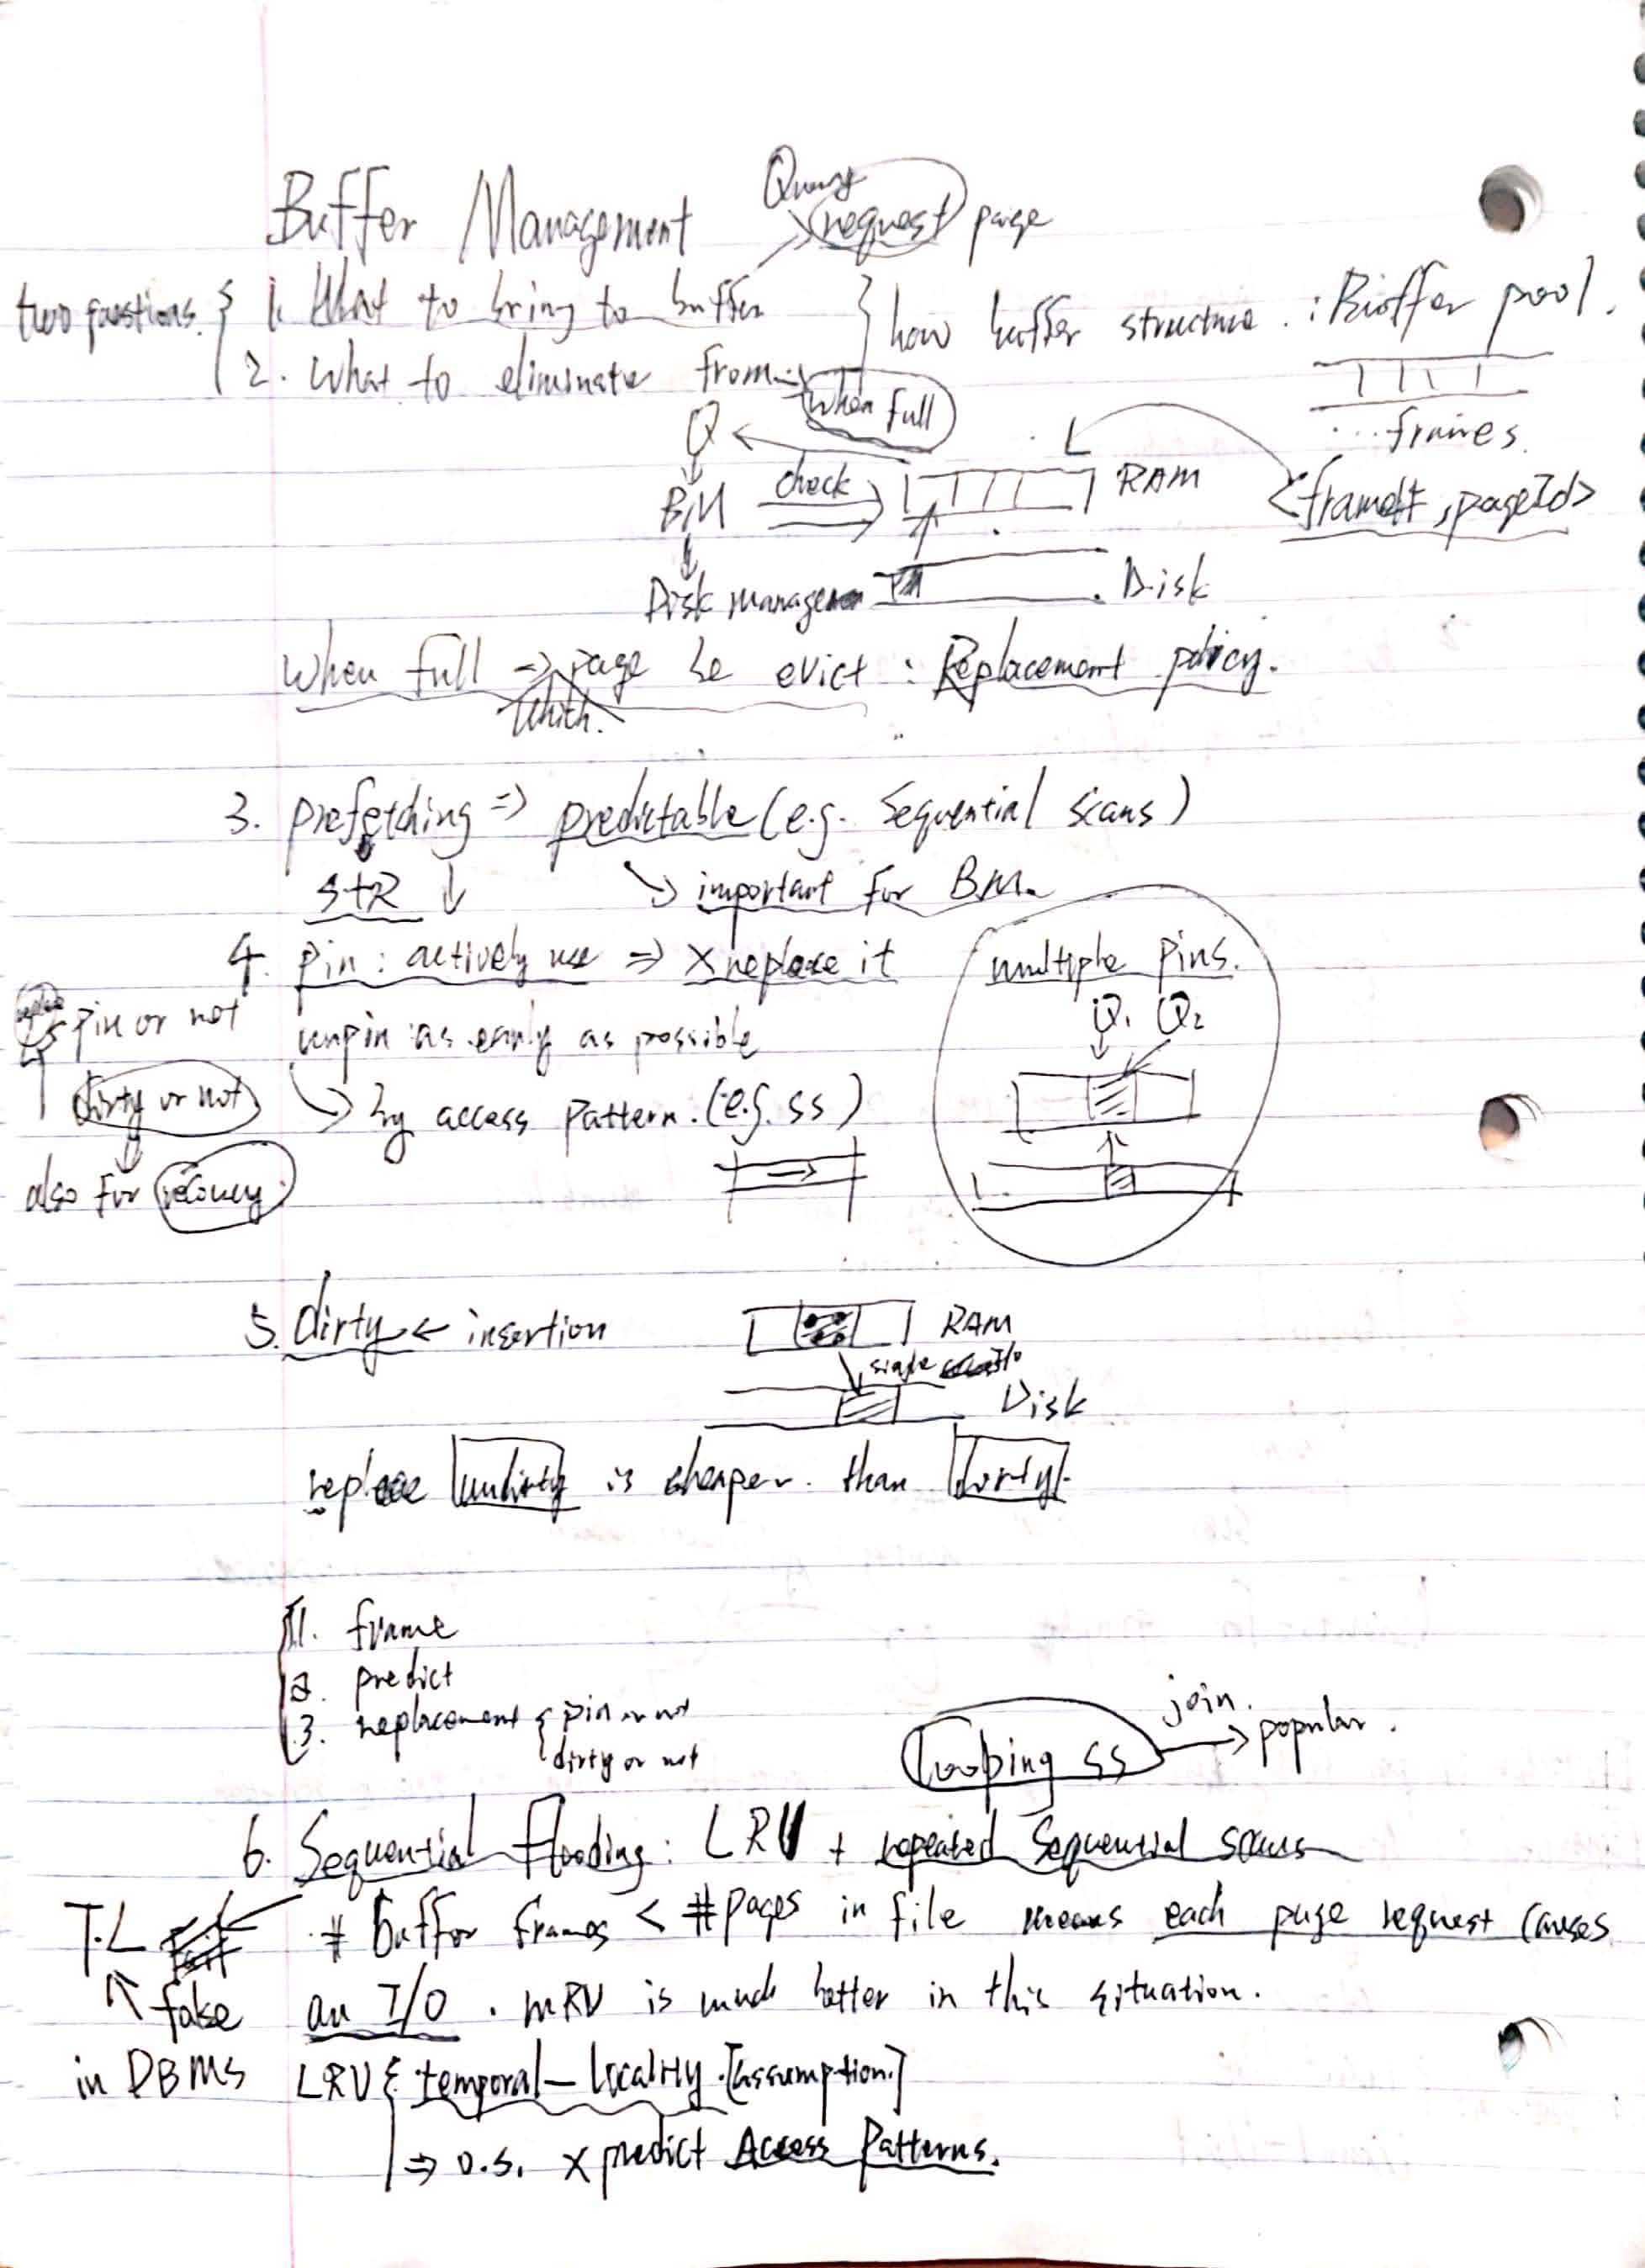 Buffer Management
Query
request page
two questions.
1. What to bring to buffer
2. What to eliminate from
how buffer structure . : Buffer pool.
... frames.
when full
Q
BM check
RAM
<frame#, pageId>
Disk
Disk manage
when full => page be evict : Replacement policy.
which.
3. prefetching => predictable (e.g. Sequential scans)
S+R ↓
↘ important for BM.
4. Pin : actively use => x replace it
multiple pins.
Q1 Q2
replace
pin or not
unpin as early as possible
dirty or not
↘ by access pattern. (e.g. ss)
also for recovery
5. dirty ← insertion
RAM
single I/O
Disk
replace undirty is cheaper than dirty.
1. frame
2. predict
3. replacement { pin or not
dirty or not
looping ss
join.
→ popular.
6. Sequential Flooding : LRU + repeated Sequential scans
# buffer frames < # pages in file means each page request causes
an I/O . MRU is much better in this situation.
T.L
false
in DBMS
LRU { temporal-locality. [assumption.]
=> O.S. x predict Access Patterns.